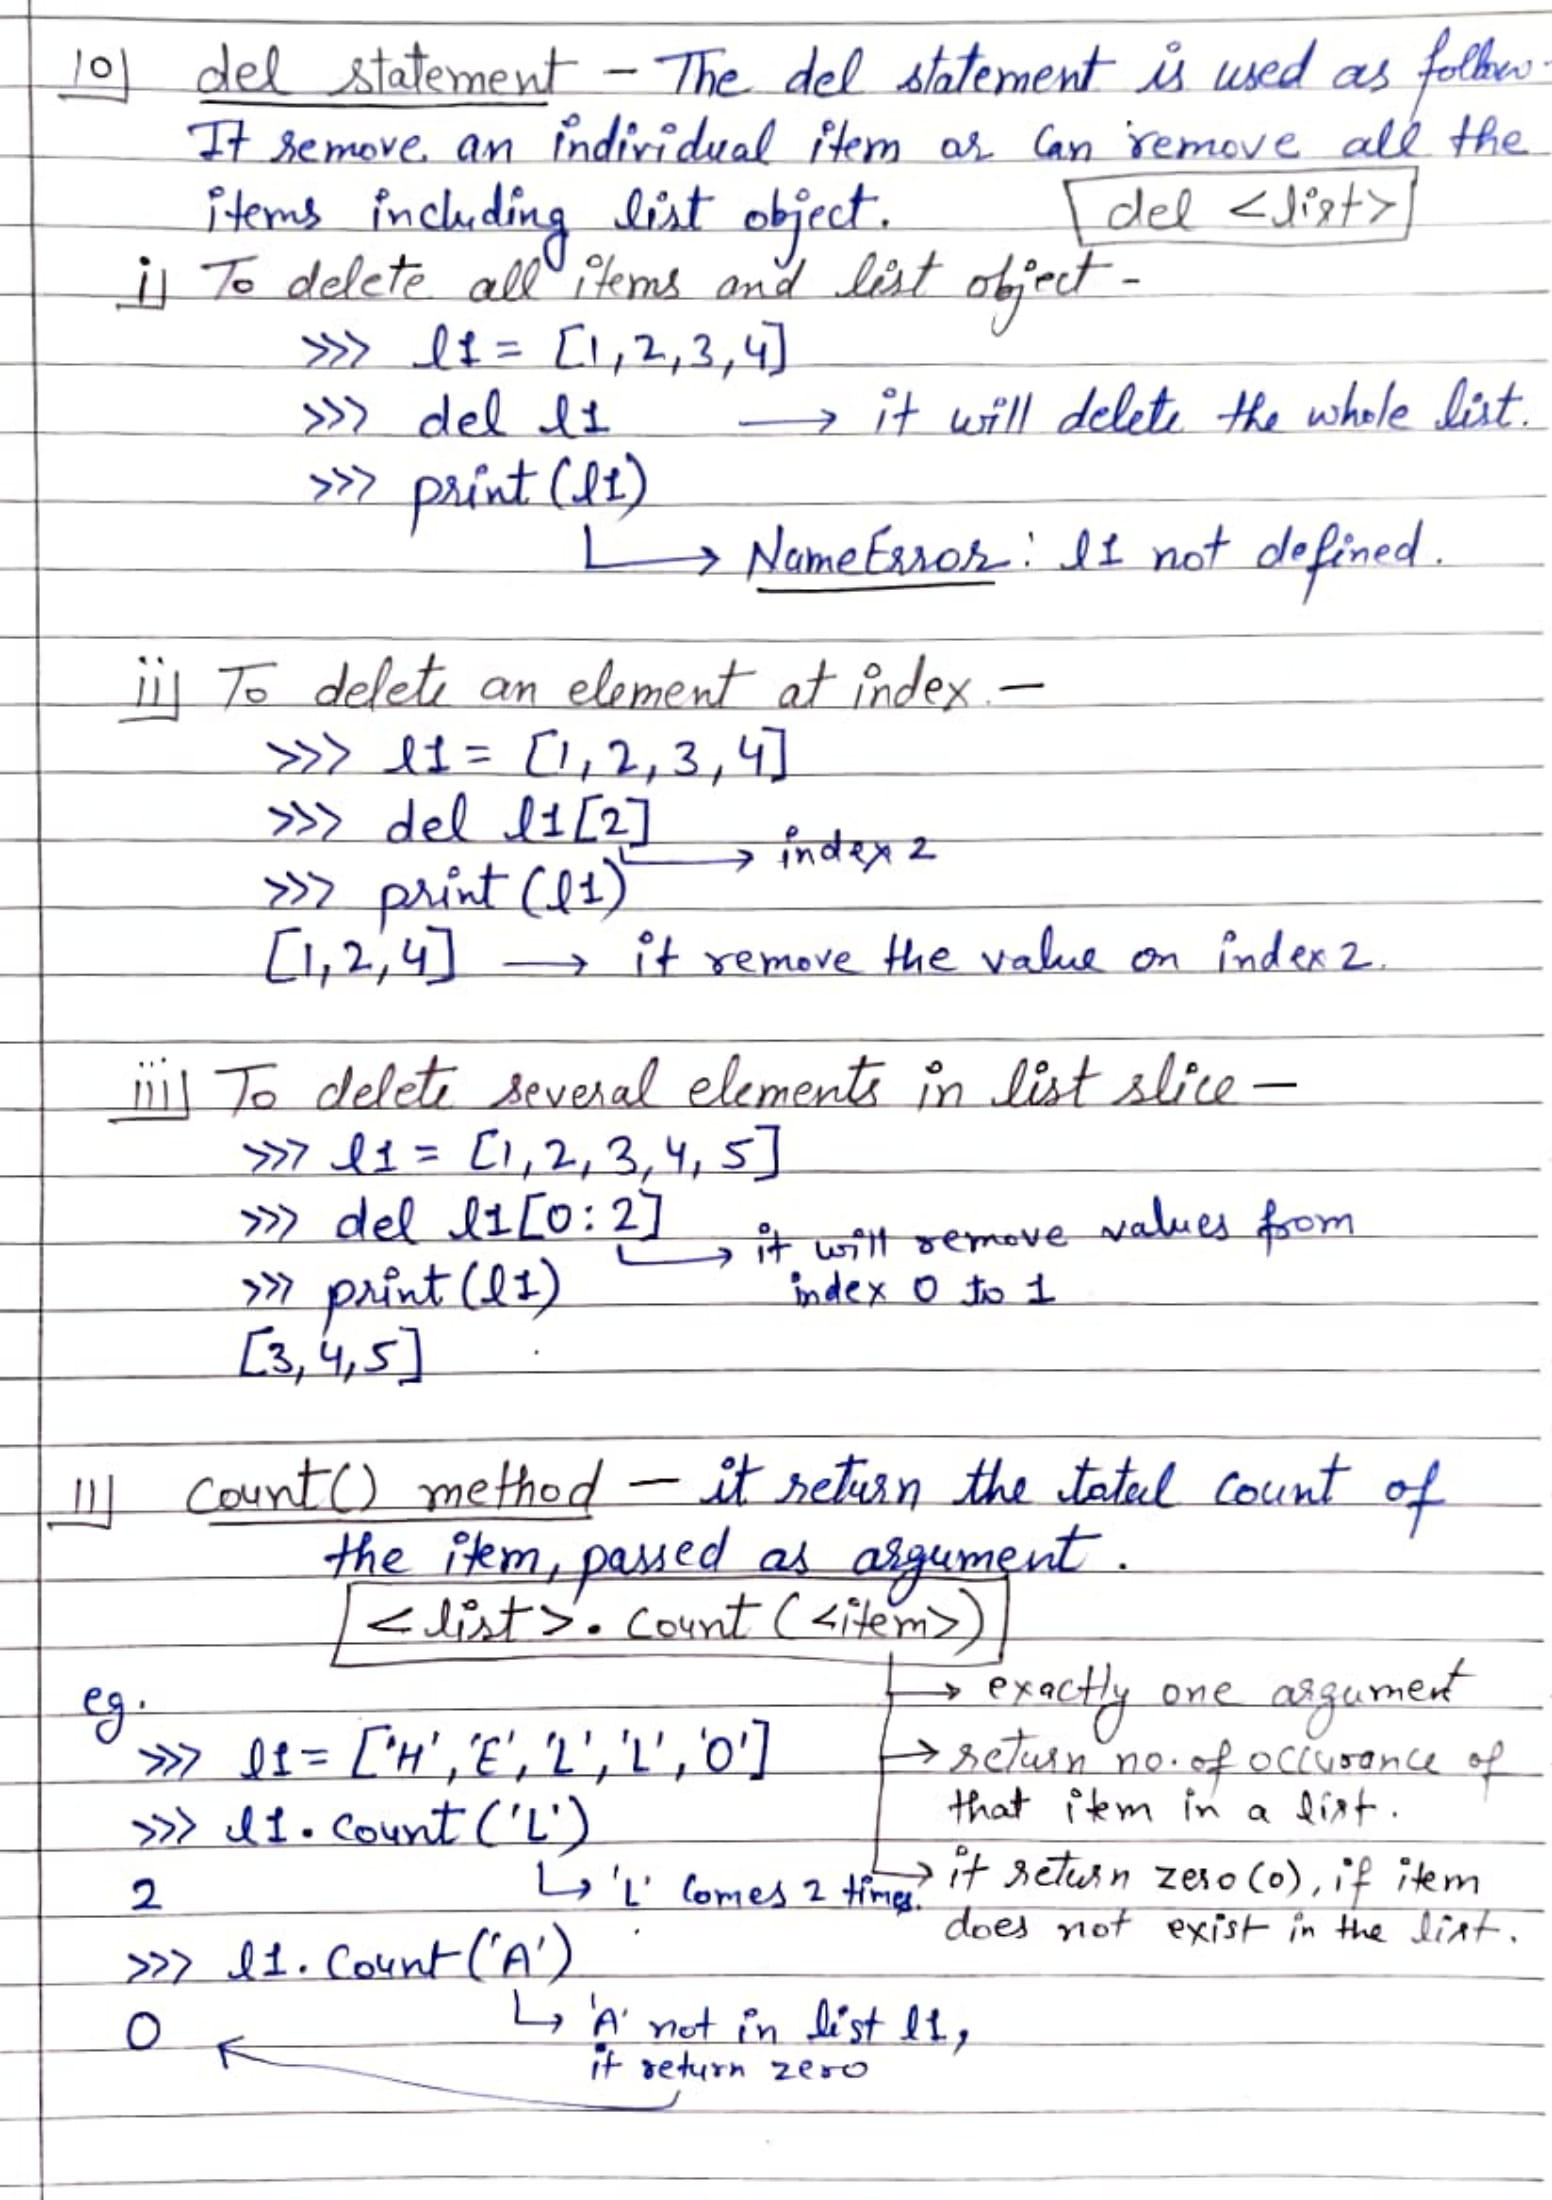 10] del statement - The del statement is used as follow -
It remove an individual item or can remove all the
items including list object. del <list>
i] To delete all items and list object -
>>> l1 = [1,2,3,4]
>>> del l1 → it will delete the whole list.
>>> print(l1)
→ NameError: l1 not defined.
ii] To delete an element at index. -
>>> l1 = [1,2,3,4]
>>> del l1[2]
→ index 2
>>> print(l1)
[1,2,4] → it remove the value on index 2.
iii] To delete several elements in list slice -
>>> l1 = [1,2,3,4,5]
>>> del l1[0:2]
→ it will remove values from
index 0 to 1
>>> print(l1)
[3,4,5]
11] count() method - it return the total count of
the item, passed as argument.
<list>.count(<item>)
→ exactly one argument
→ return no. of occurance of
that item in a list.
→ it return zero(0), if item
does not exist in the list.
eg.
>>> l1 = ['H','E','L','L','O']
>>> l1.count('L')
→ 'L' comes 2 times.
2
>>> l1.count('A')
→ 'A' not in list l1,
it return zero
0